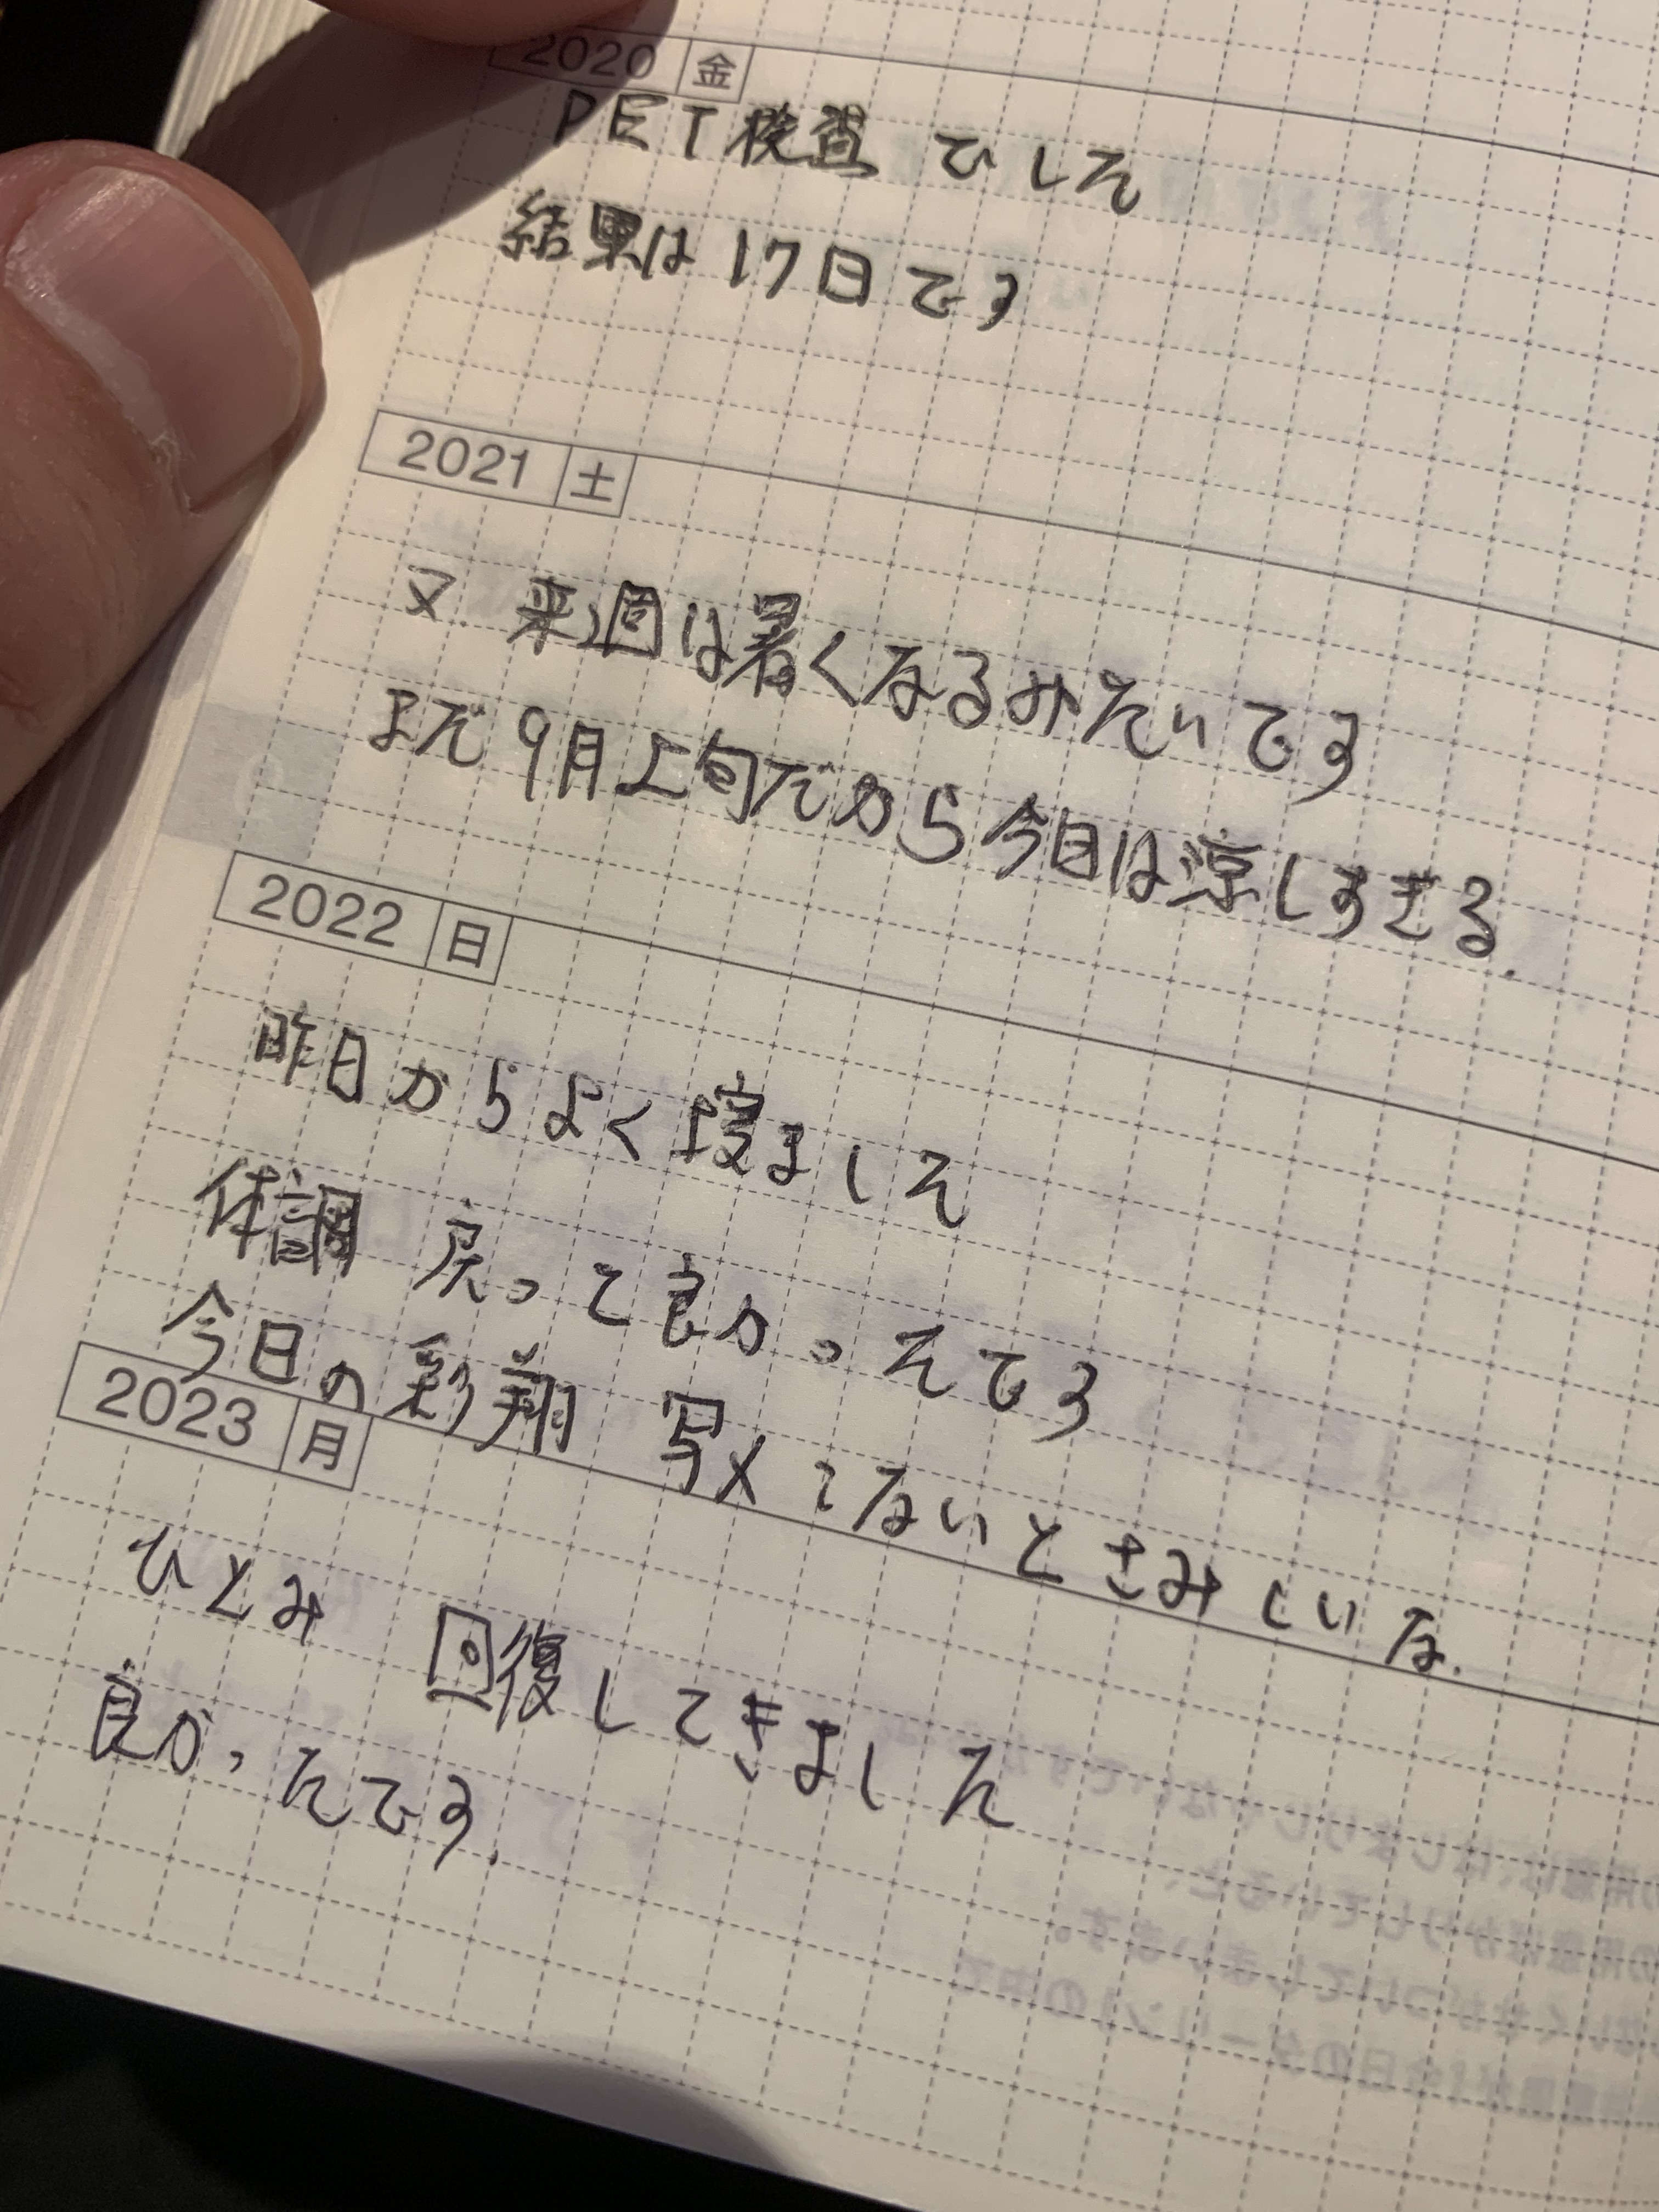 2020 金
PET検査 でした
結果は17日です
2021 土
又 来週は暑くなるみたいです
まだ9月上旬だから今日は涼しすぎる.
2022 日
昨日からよく寝ました
体調 戻って良かったです
今日の彩翔 写メこないとさみしいな.
2023 月
ひとみ 回復してきました
良かったです.